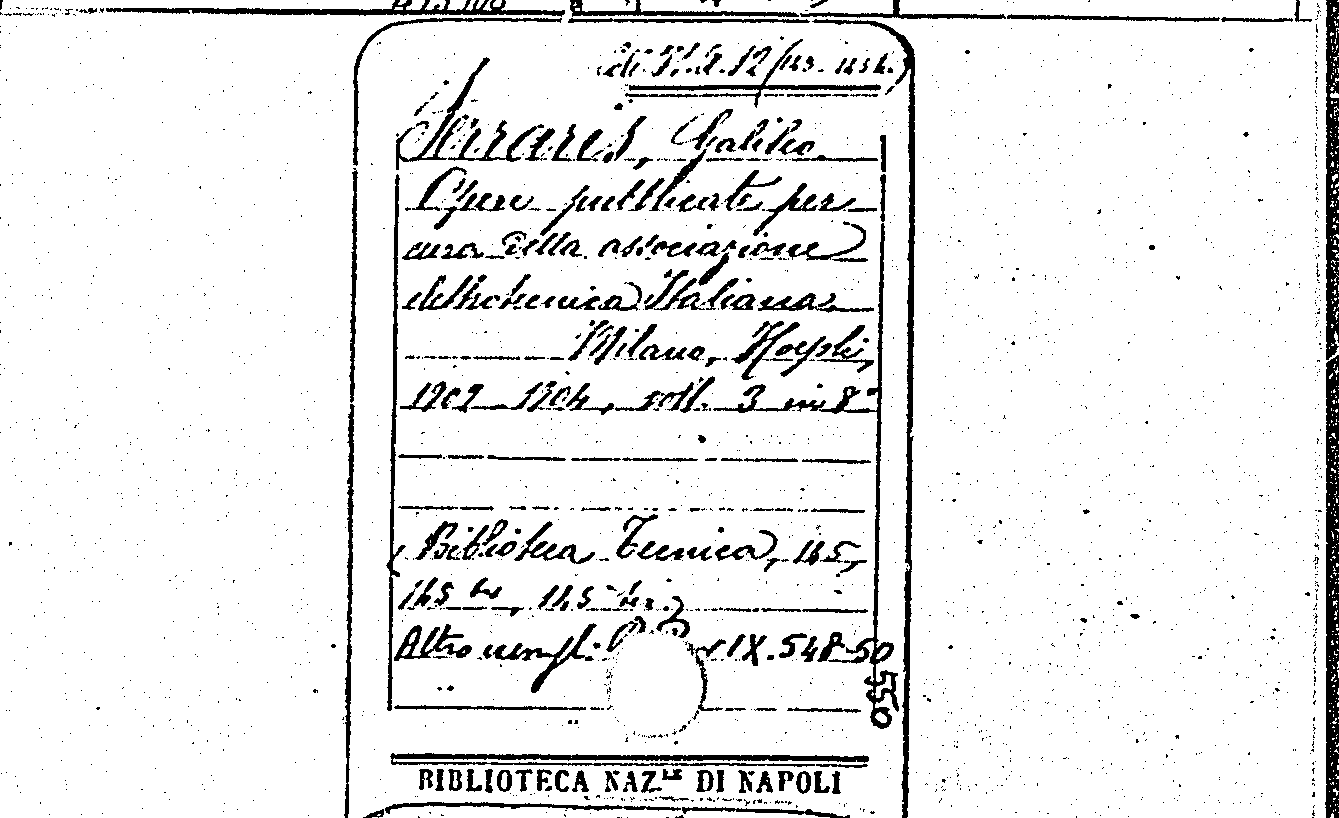 Ferraris, Galileo.
Opere pubblicate per
cura della associazione
elettrotecnica Italiana.
Milano, Hoepli,
1902-1904, voll. 3 in 8°
(Biblioteca Tecnica, 145,
145 bis, 145 ter.)
Altro esempl: IX. 548-50
550
BIBLIOTECA NAZ.LE DI NAPOLI